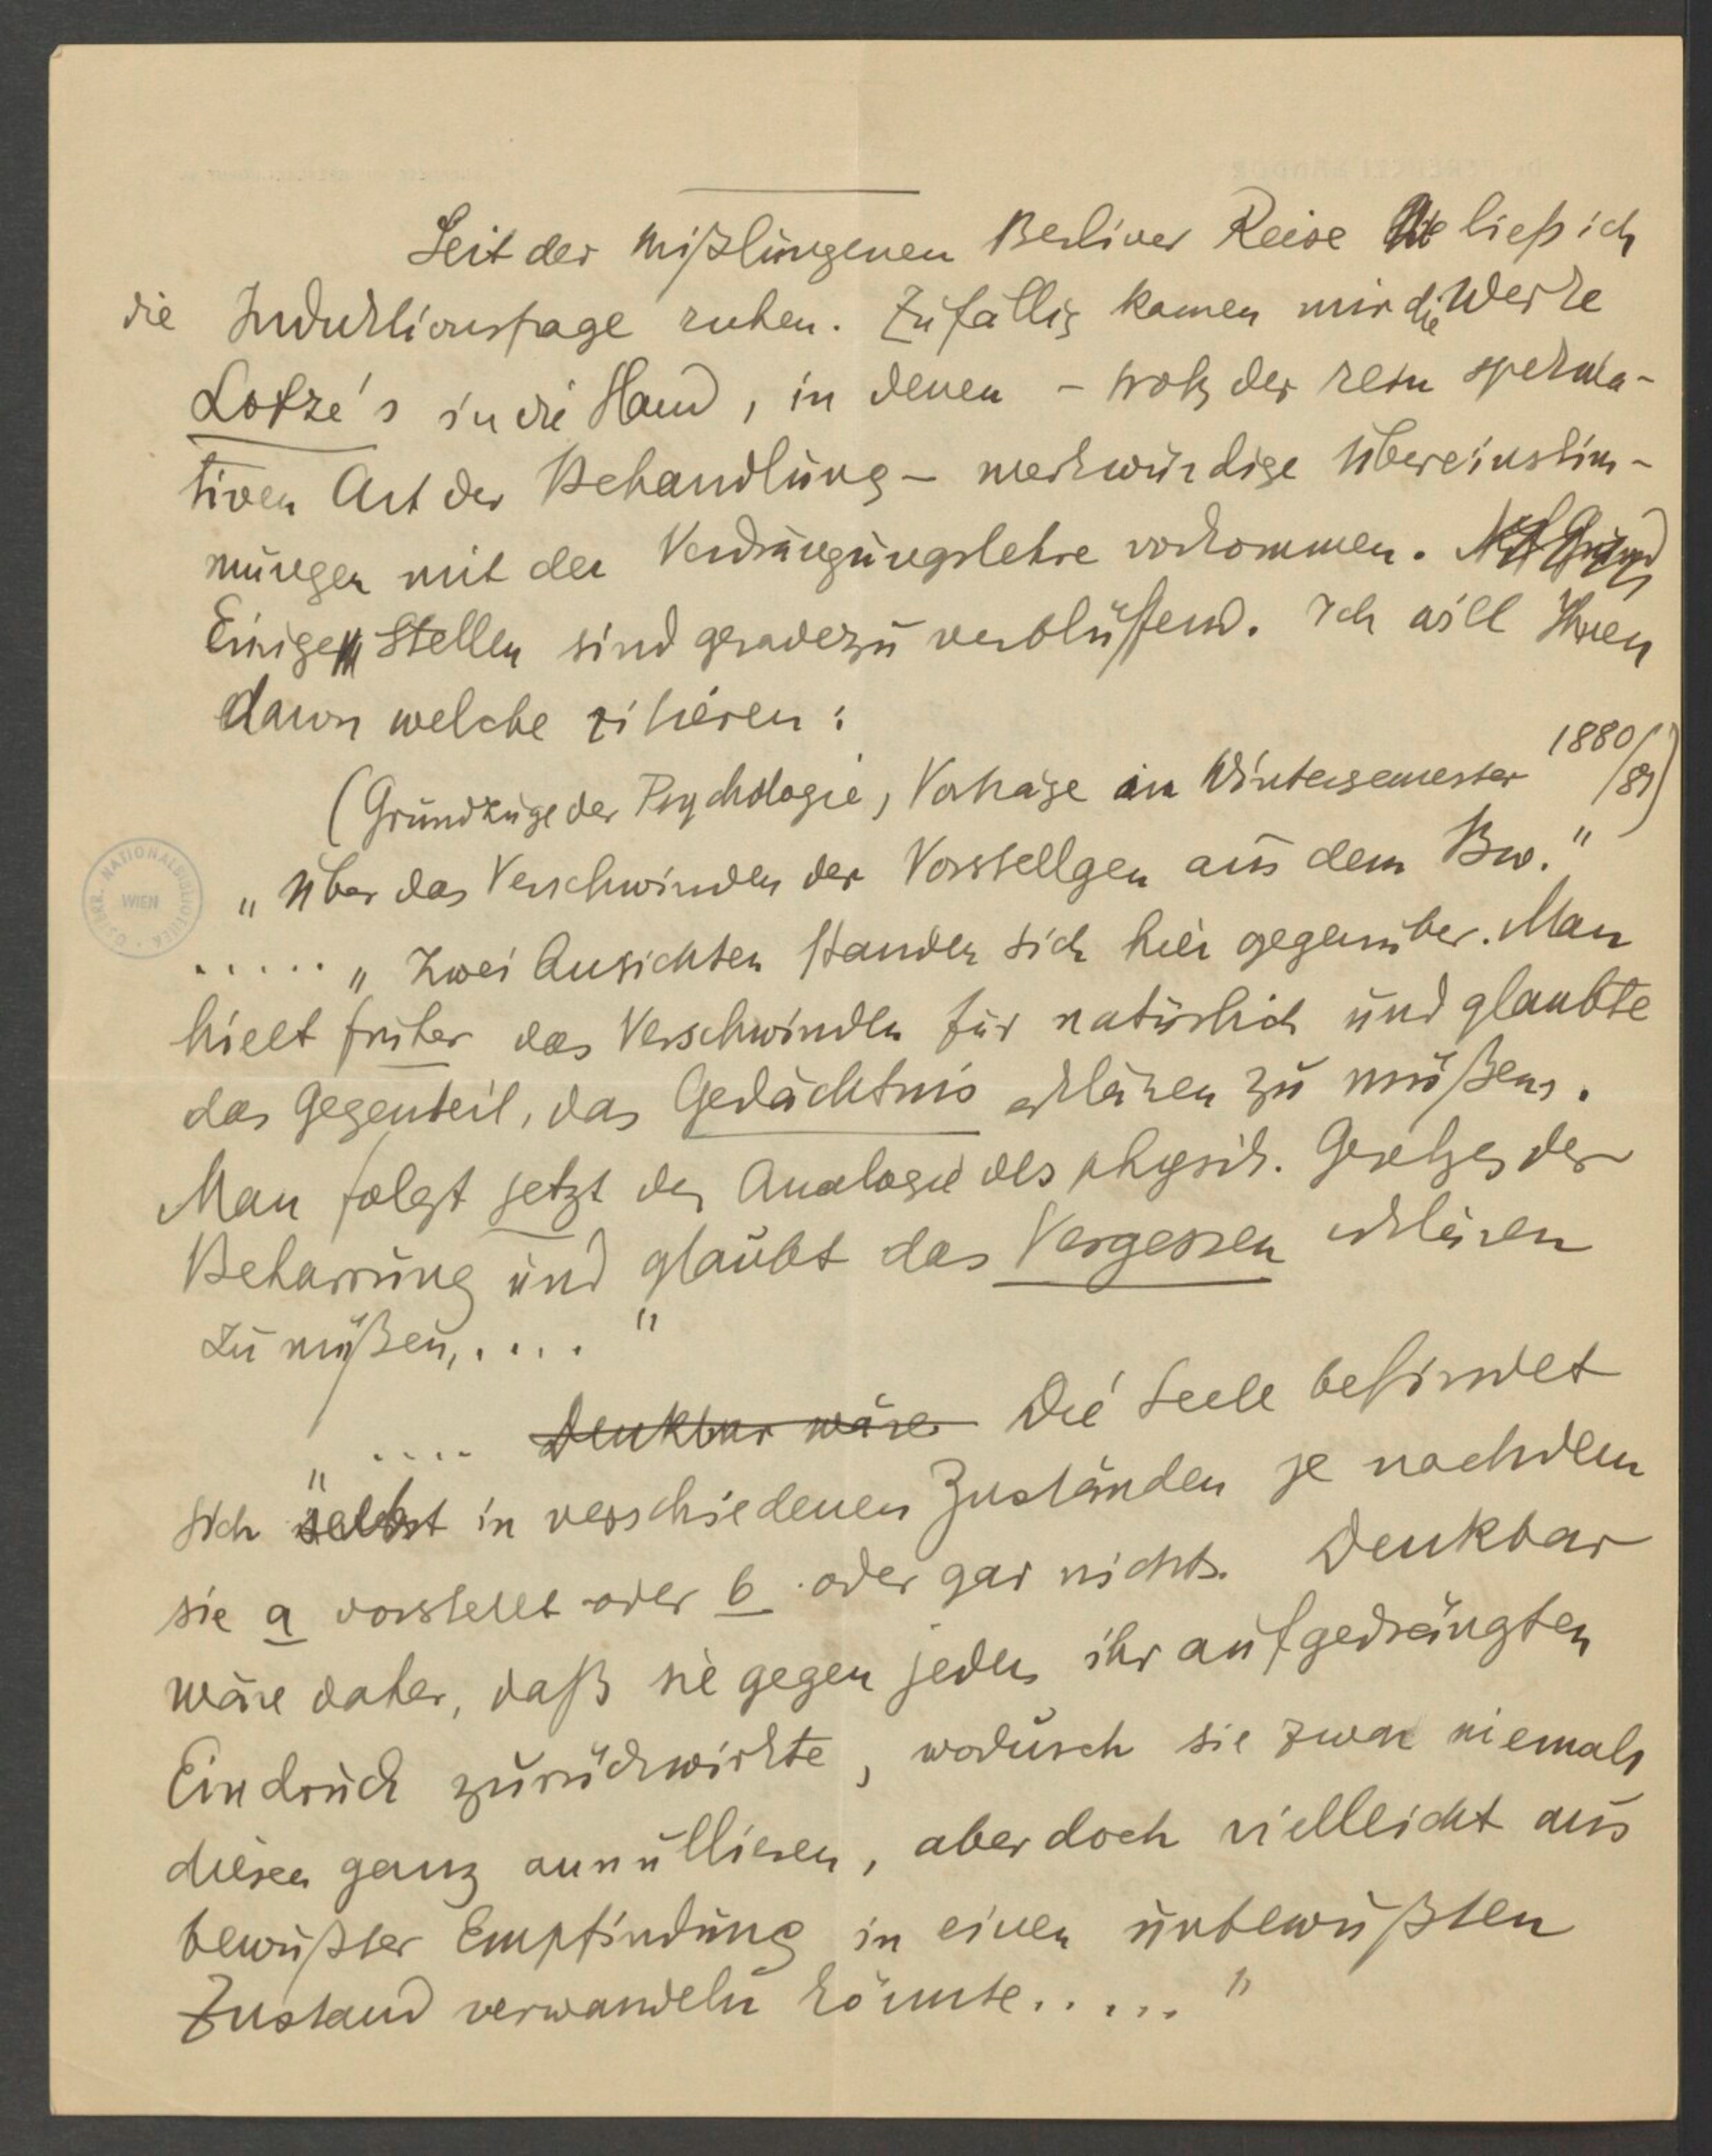 Seit der mißlungenen Berliner Reise ließ ich
die Induktionsfrage ruhen. Zufällig kamen mir die Werke
Lotze's in die Hand, in denen – trotz der rein spekula-
tiven Art der Behandlung – merkwürdige Übereinstim-
mungen mit der Verdrängungslehre vorkommen.
Einige Stellen sind geradezu verblüffend. Ich will Ihnen
davon welche zitieren:
(Grundzüge der Psychologie, Vorträge im Wintersemester 1880/81)
„Über das Verschwinden der Vorstellgen aus dem Bw."
..... „Zwei Ansichten standen sich hier gegenüber. Man
hielt früher das Verschwinden für natürlich und glaubte
das Gegenteil, das Gedächtnis erklären zu müßen.
Man folgt jetzt der Analogie des physik. Gesetzes der
Beharrung und glaubt das Vergessen erklären
zu müßen,...."
„.... Denkbar wäre Die Seele befindet
sich selbst in verschiedenen Zuständen je nachdem
sie a vorstellt oder b oder gar nichts. Denkbar
wäre daher, daß sie gegen jeden ihr aufgedrängten
Eindruck zurückwirkte, wodurch sie zwar niemals
diesen ganz annullieren, aber doch vielleicht aus
bewußter Empfindung in einen unbewußten
Zustand verwandeln könnte....."
ÖSTERR. NATIONALBIBLIOTHEK
WIEN